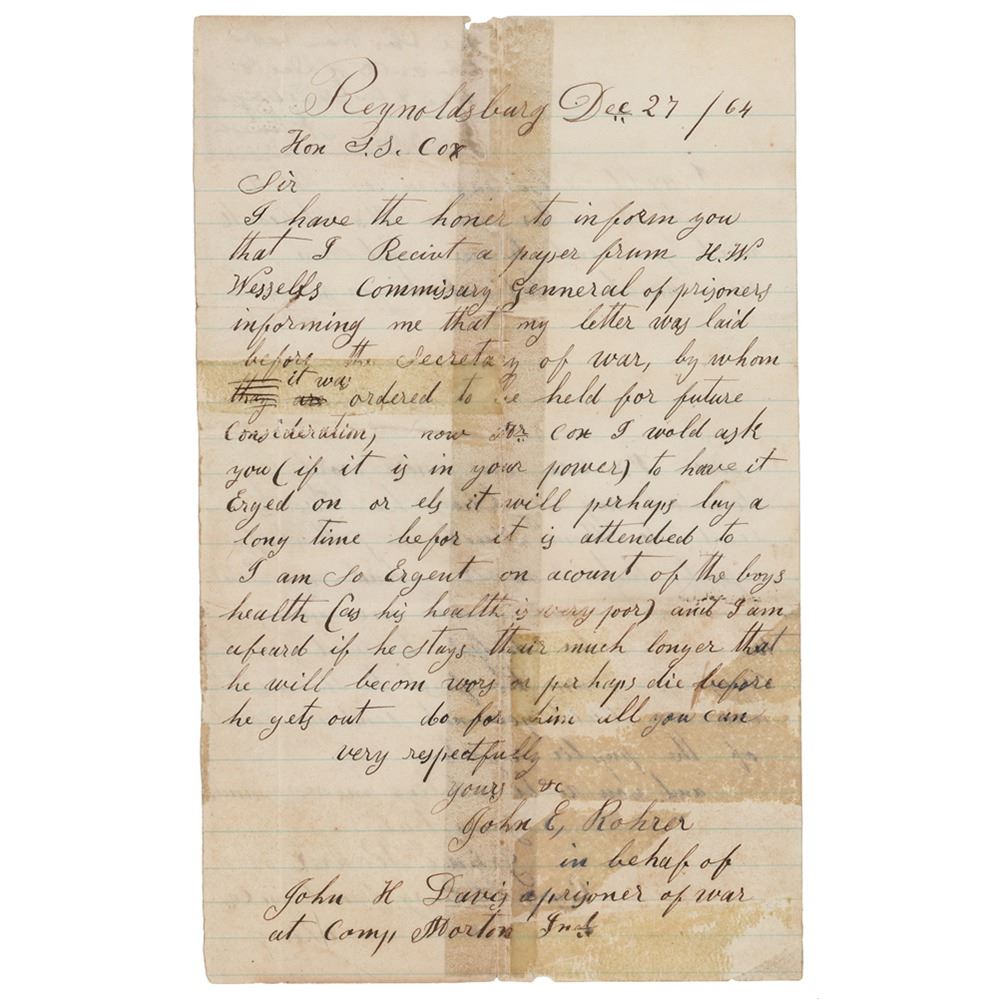 Reynoldsburg Dec 27 / 64
Hon S.S. Cox
Sir
I have the honer to inform you
that I Recivt a paper frum H.W.
Wessells Commissary Genneral of prisoners
informing me that my letter was laid
before the Secretary of war, by whom
it was
they are ordered to be held for future
Consideration, now Mr Cox I wold ask
you (if it is in your power) to have it
Erged on or els it will perhaps lay a
long time befor it is attended to
I am so Ergent on acount of the boys
health (as his health is very poor) and I am
afeard if he stays their much longer that
he will becom wors or perhaps die before
he gets out do for him all you can
very respectfully
yours &c
John E, Rohrer
in behaf of
John H Davis a prisoner of war
at Camp Morton Ind